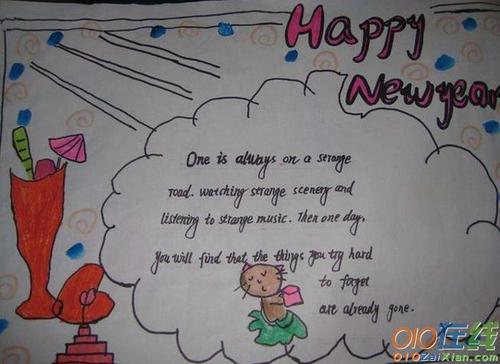 Happy
New year
One is always on a strange
road. watching strange scenery and
listening to strange music. Then one day,
You will find that the things you try hard
to forget
are already gone.
010在线
010ZaiXian.com